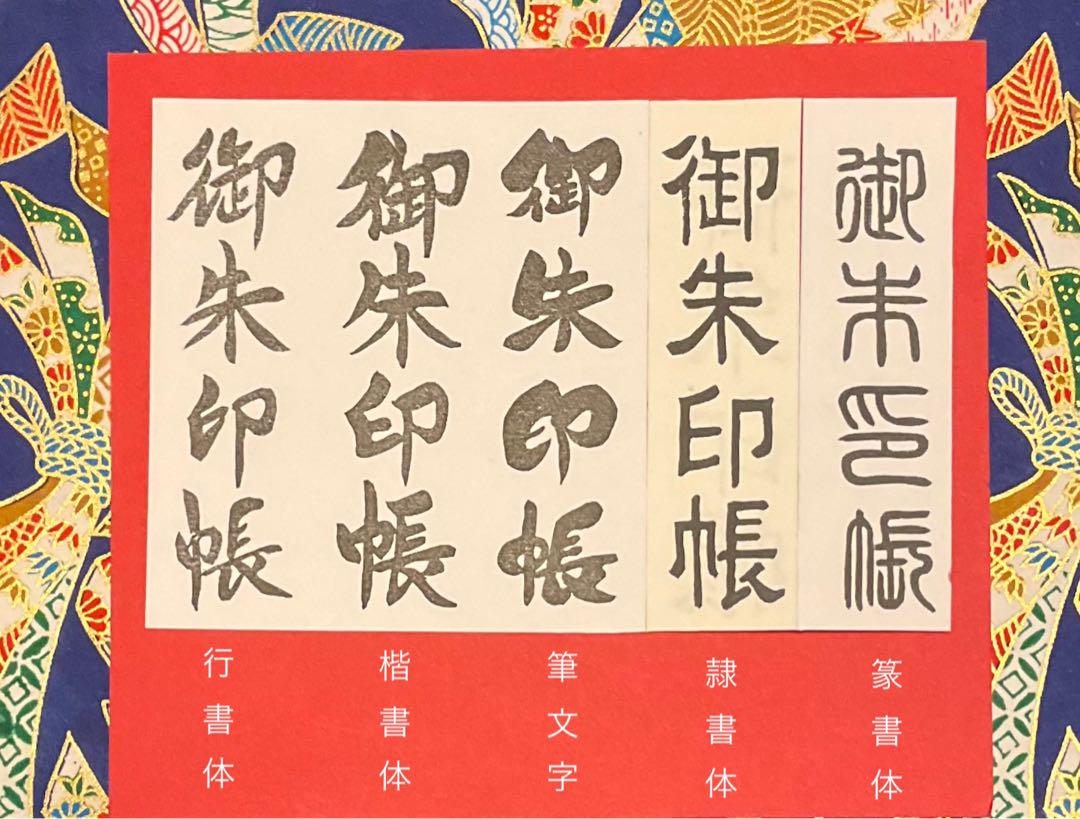 御朱印帳
御朱印帳
御朱印帳
御朱印帳
御朱印帳
篆書体
隷書体
筆文字
楷書体
行書体